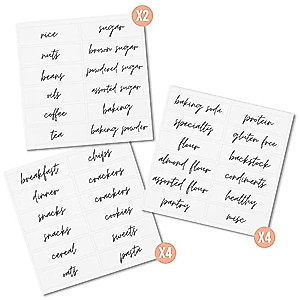 X2
rice
sugar
nuts
brown sugar
beans
powdered sugar
oils
assorted sugar
coffee
baking
tea
baking powder
baking soda
protein
specialty
gluten free
flour
backstock
almond flour
condiments
assorted flour
healthy
pantry
misc
X4
breakfast
chips
dinner
crackers
snacks
crackers
snacks
cookies
cereal
sweets
oats
pasta
X4